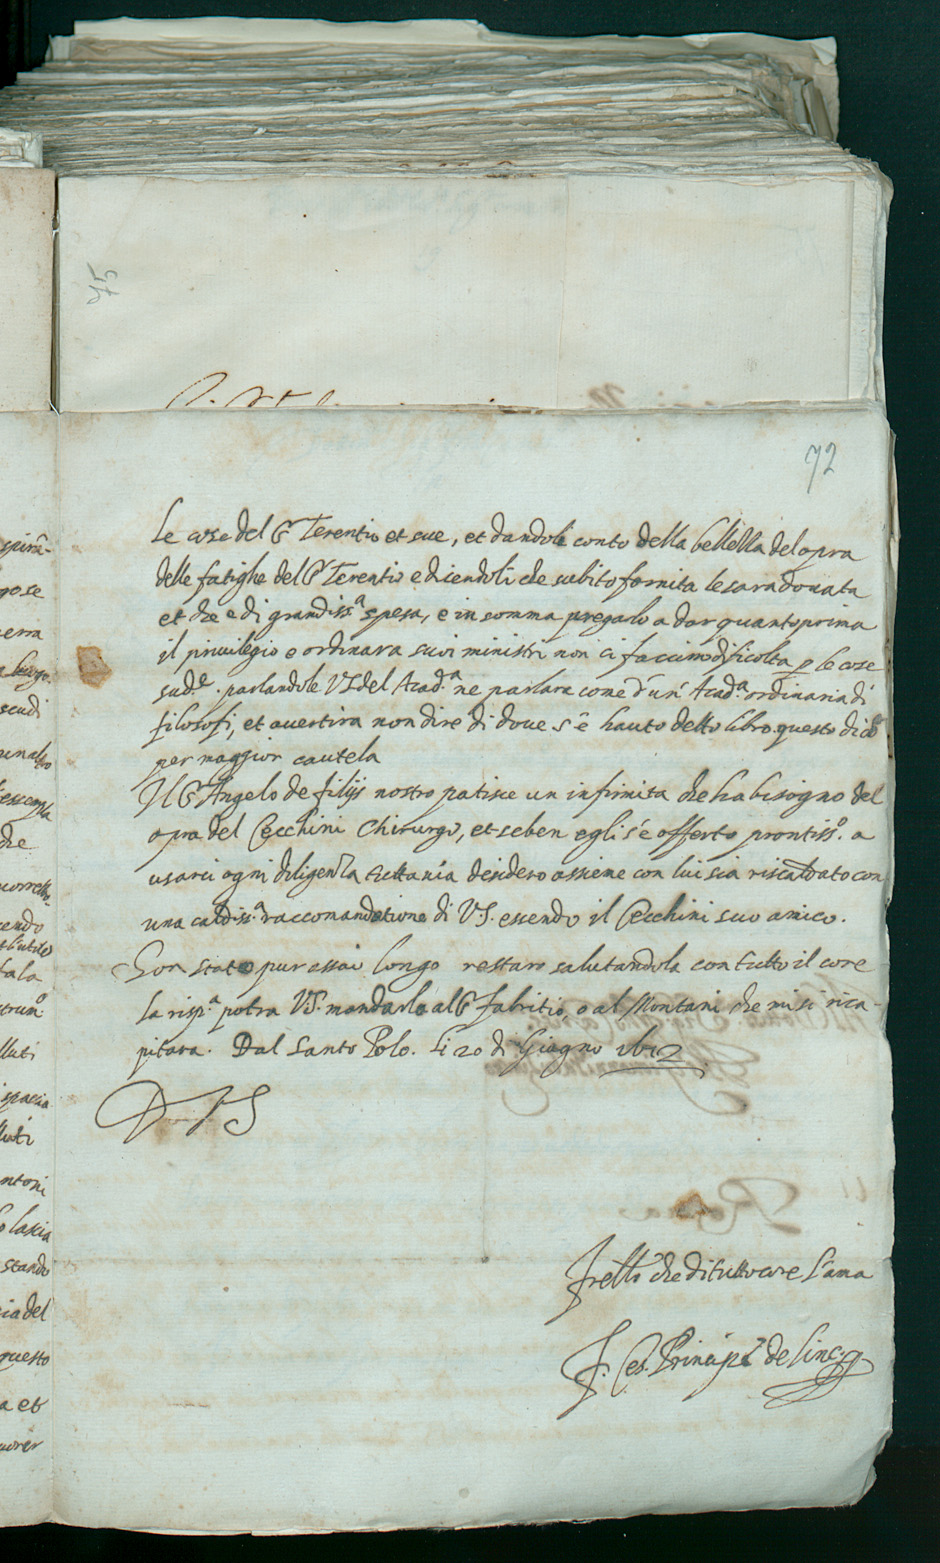 75
72
le cose del S.r Terentio et sue, et dandole conto della bellezza del opra
delle fatighe del S.r Terentio e dicendoli che subito fornita le sara donata
et che e di grandiss.a spesa, e in somma pregarlo a dar quanto prima
il privilegio e ordinara suoi ministri non ci faccino dificolta p le cose
sud.e. parlandole VS del Acad.a ne parlara come d'un' Acad.a ordinaria di
filosofi, et avertira non dire di dove s'è hauto detto libro. questo dico
per maggior cautela
Il S.r Angelo de filijs nostro patisce un infirmita che ha bisogno del
opra del Cecchini Chirurgo, et seben egli s'è offerto prontiss.o a
usarci ogni diligenza tuttavia desidero assieme con lui sia riscaldato con
una caldiss.a raccomandatione di VS. essendo il Cecchini suo amico.
Son stato pur assai longo restaro salutandola con tutto il core
la risp.a potra VS. mandarla al S.r fabritio, o al Montani che mi si rica-
pitara. Dal Santo Polo. li 20 di Giugno 1612
D V S
frello che di tutto core l'ama
F. Ces. Principe de Lincei
spirā-
gose
erra
scudi
che
cendo
lluti
ispacia
lluti
ntoni
o lascia
stando
ia del
questo
a et